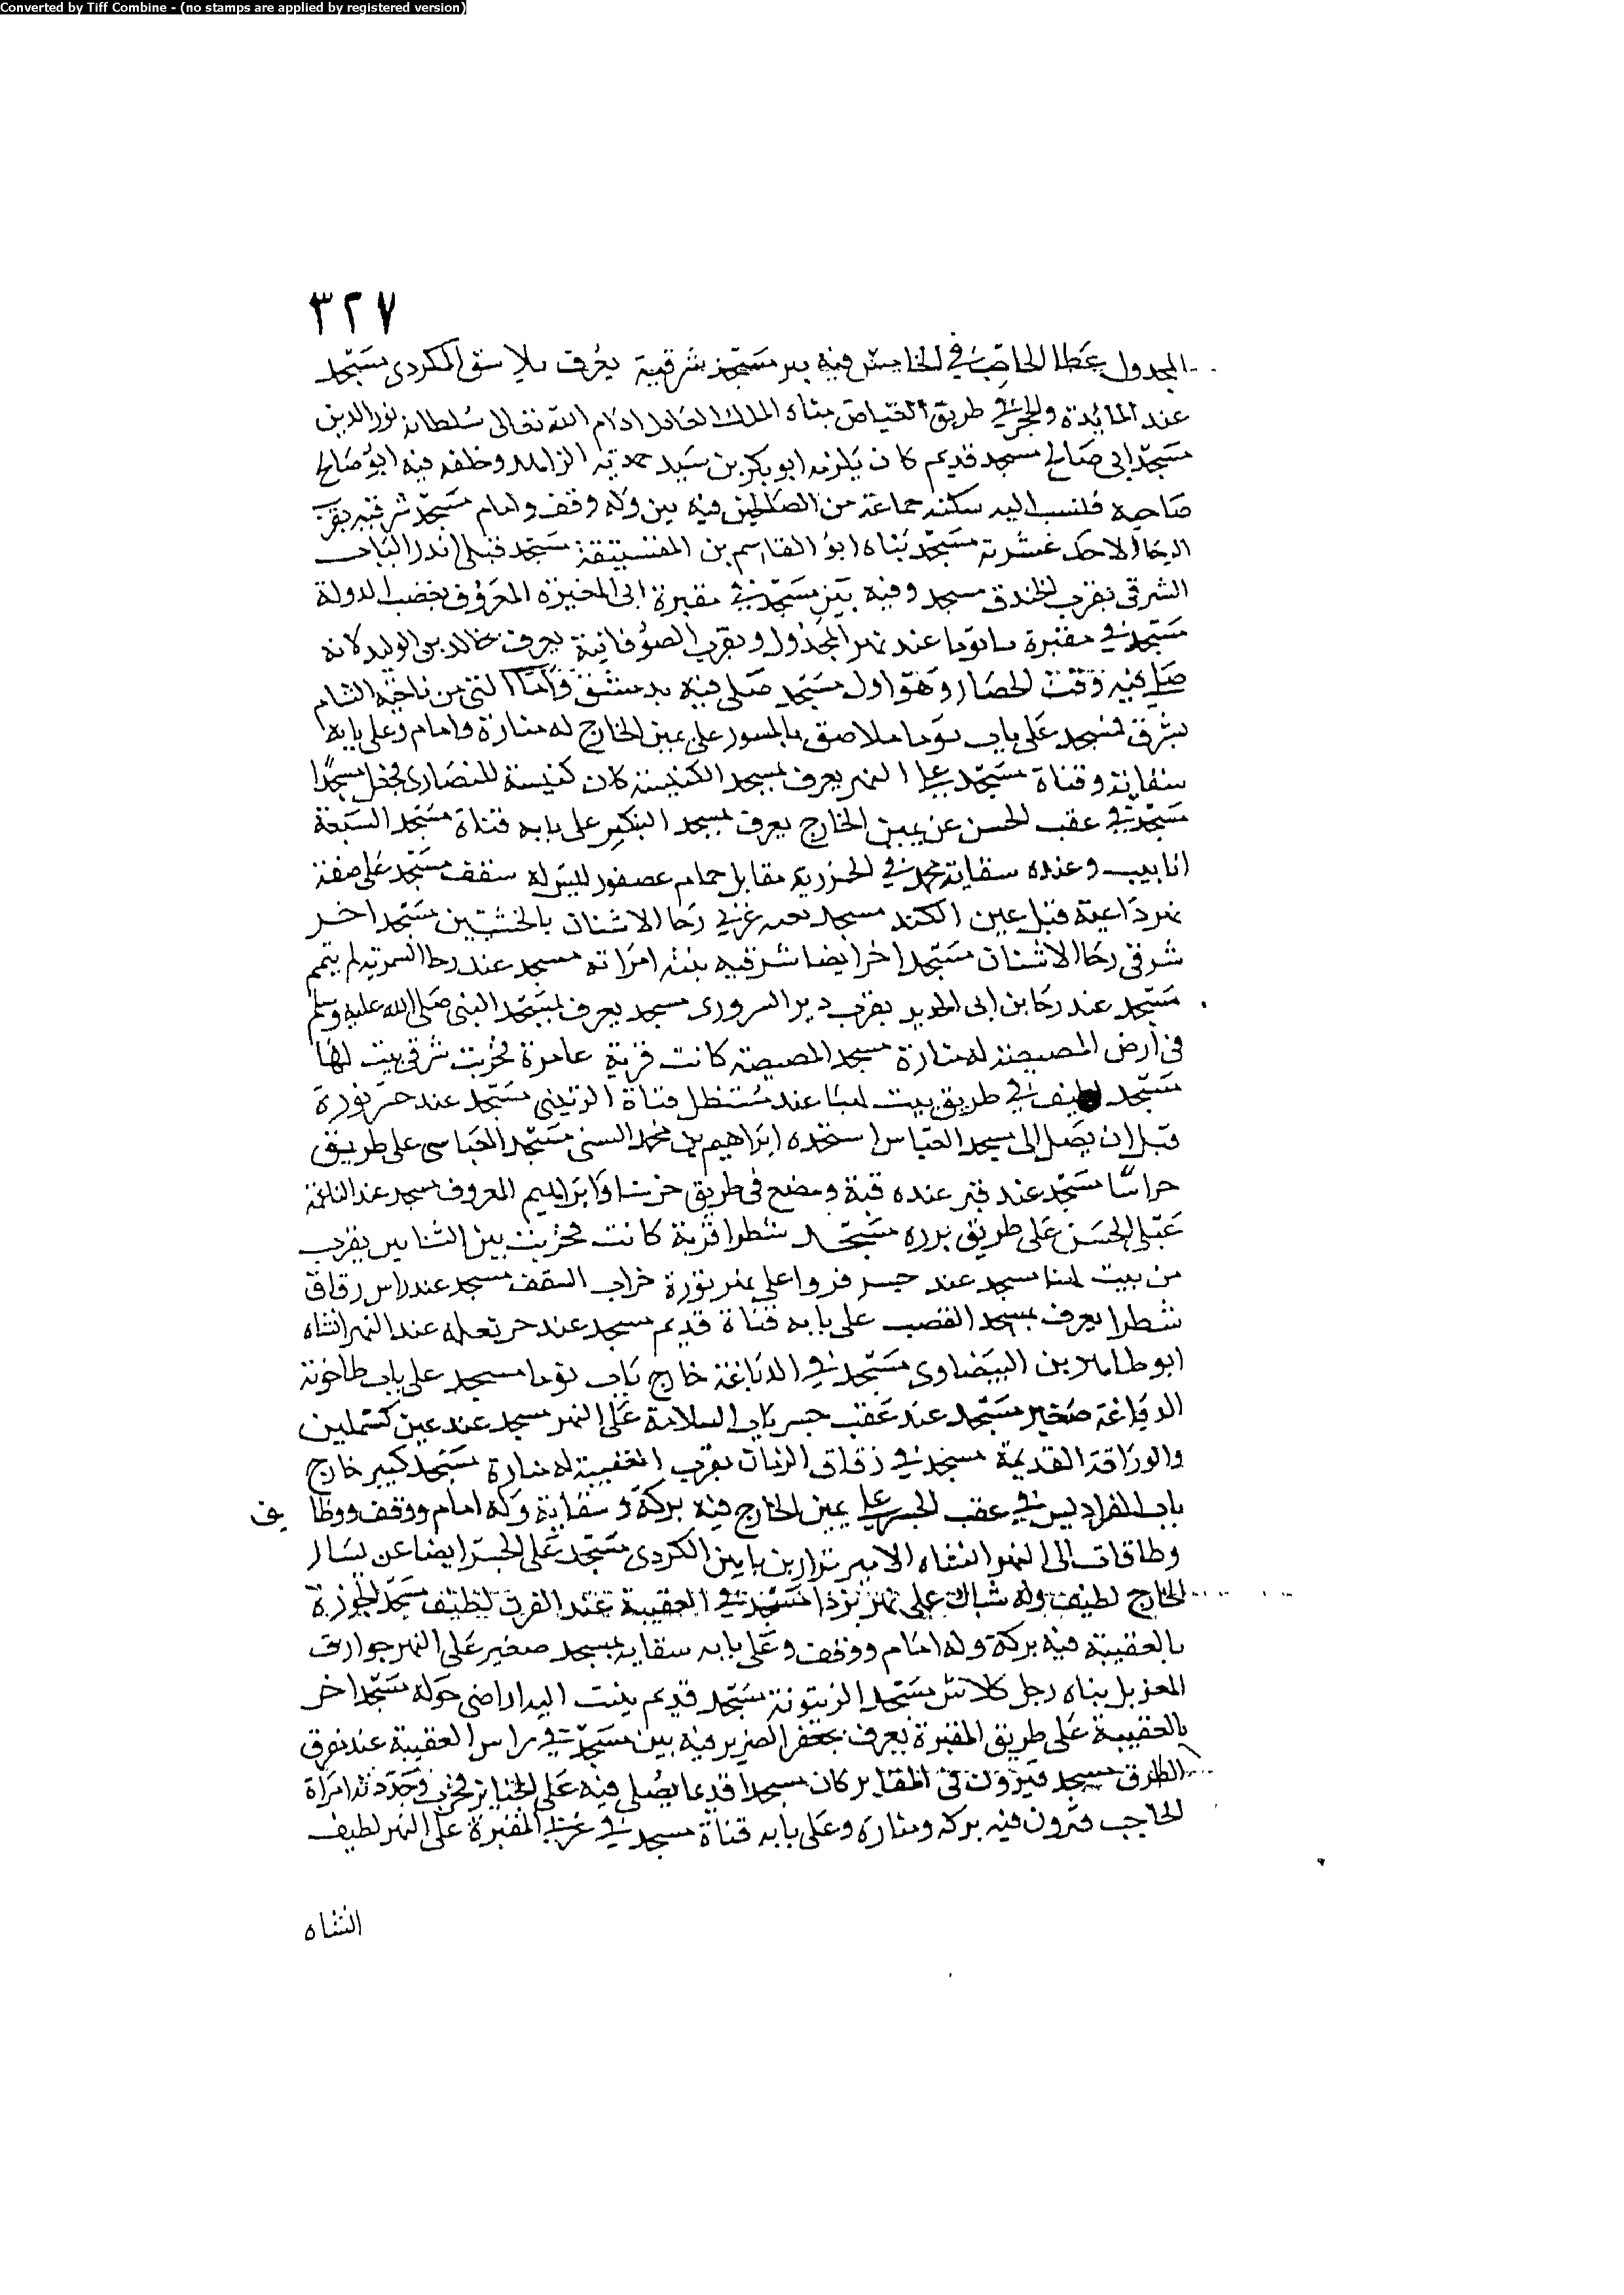 Converted by Tiff Combine - (no stamps are applied by registered version)
٣٢٧
المجدول عطا الحاجب في الخامس فيه بير مسجد شرقية يعرف بلاشق الكردى مسجد
عند المائدة والحجر في طريق القياض بناه الملك العادل ادام الله تعالى سلطانه نور الدين
مسجد ابى صالح مسجد قديم كان يلزمه ابو بكر بن سيد حمدويه الزاهد وخلفه فيه ابو صالح
صاحبه فلنسب اليه سكنه جماعة من الصالحين فيه بير وله وقف وامام مسجد شرقيه بقرب
الرحا الاحد عشرية مسجد بناه ابو القاسم بن المفسيتقة مسجد قبلى اندر الباب
الشرقى بقرب الخندق مسجد وفيه بير مسجد في مقبرة ابى المعروف بخضب الدولة
مسجد في مقبرة باب توما عند نهر المجدول وبقرب الصوفانية يعرف بخالد بن الوليد لانه
صلى فيه وقت الحصار وهو اول مسجد صلى فيه بدمشق وأما التى من ناحية الشام
بشرق فمسجد على باب توما ملاصق بالسور على يمين الخارج له منارة وامام وعلى بابه
سقاية وقناة مسجد على النهر يعرف بمسجد الكنيسة كان كنيسة للنصارى فجعل مسجدا
مسجد في عقب الجسر عن يمين الخارج يعرف بمسجد على بابه قناة مسجد السبعة
انابيب وعنده سقاية مسجد في الحزرية مقابل حمام عصفور لليس له سقف مسجد على صفة
نهر داعية قبل عين الكند مسجد غربي رحا الاشنان بالخشبتين مسجد اخر
شرقى رحا الاشنان مسجد اخر ايضا شرقيه بنته امراته مسجد عند رحا السمرية لم يتمم
مسجد عند رحا بن ابى الحديد بقرب دير السرورى مسجد يعرف بمسجد النبى صلى الله عليه وسلم
في أرض المصيصة له منارة مسجد المصيصة كانت قرية عامرة فخربت شرقى بيت لهيا
مسجد لطيف في طريق بيت لهيا عند مستظل قناة الزينبى مسجد عند جسر ثورة
قبل ان يصل الى مسجد العباس استجده ابراهيم بن محمد السنى مسجد العباسى على طريق
حرستا مسجد عند قبر عنده قبة ومصنع في طريق حرستا وابراهيم المعروف مسجد عند
على طريق برزه مسجد شطرا قرية كانت فخربت بين بقرب
من بيت لهيا مسجد عند جسر فروا على نهر ثورة خراب السقف مسجد عند راس زقاق
شطرا يعرف بمسجد القصب على بابه قناة قديم مسجد عند جسر عند النهر انشاه
ابو طاهر بن البيضاوى مسجد في الدباغة خارج باب توما مسجد على باب طاحونة
الدباغة صغير مسجد عند عقب جسر باب السلامة على النهر مسجد عند عين كشملين
والوراقة القديمة مسجد في زقاق الرمان بقرب العقيبة له منارة مسجد كبير خارج
باب الفراديس في عقب الجسر على يمين الخارج فيه بركة وسقاية وله امام ووقف ووظايف
وطاقات الى النهر انشاه الامير نزار بن يامين الكردى مسجد على الجسر ايضا عن يسار
الخارج لطيف وله شباك على نهر بردا مسجد في العقيبة عند الفرن لطيف مسجد الجوزة
بالعقيبة فيه بركة وله امام ووقف وعلى بابه سقاية مسجد صغير على النهر جوار
بناه رجل كلاس مسجد الزيتونة مسجد قديم بنت اليه اراضى حوله مسجد اخر
بالعقيبة على طريق المقبرة يعرف بجعفر الضرير فيه بير مسجد في راس العقيبة عند مفرق
الطرق مسجد فيزون في المقابر كان مسجدا قديما يصلى فيه على الجنايز فخرب وجددته امراة
الحاجب فيرون فيه بركه ومنارة وعلى بابه قناة مسجد في غربى المقبرة على النهر لطيف
انشاه